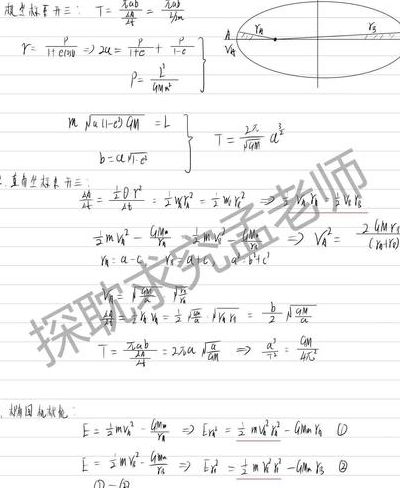 极坐标看开三: T = πab / (ΔA/Δt) = πab / (L/2m)
r = P/(1+ecosθ) ⇒ 2a = P/(1+e) + P/(1-e)
P = L²/(GMm²)
m√(a(1-e²)GM) = L
b = a√(1-e²)
T = 2π/√(GM) a^(3/2)
直角坐标看开三:
ΔA/Δt = ½θr²/Δt = ½v_A r_A = ½ωr² ⇒ ½v_A r_A = ½v_B r_B
½mv_A² - GMm/r_A = ½mv_B² - GMm/r_B ⇒ V_A² =
r_A = a-c, r_B = a+c, a² = b²+c²
V_A = √(GM/a) √(r_B/r_A)
ΔA/Δt = ½r_A v_A = ½√(GM/a) √(r_A r_B) = b/2 √(GM/a)
T = πab / (ΔA/Δt) = 2πa√(a/GM) ⇒ a³/T² = GM/4π²
椭圆机械能:
E = ½mv_A² - GMm/r_A ⇒ Er_A² = ½mv_A²r_A² - GMm r_A ①
E = ½mv_B² - GMm/r_B ⇒ Er_B² = ½mv_B²r_B² - GMm r_B ②
①-②
A
V_A
r_A
r_B
探耽求究孟老师